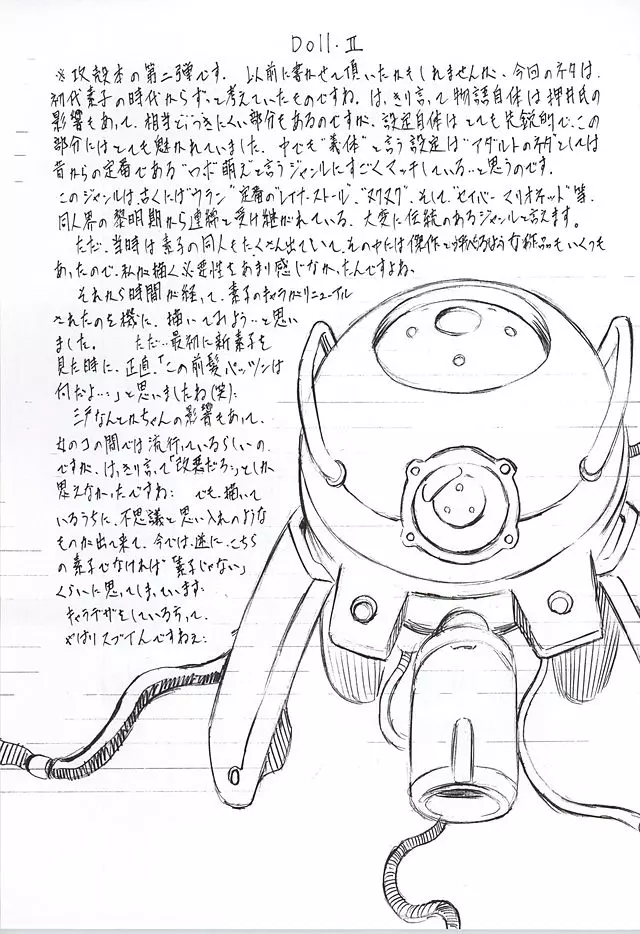 Doll.Ⅱ
※攻殻本の第二弾です. 以前に書かせて頂いたかもしれませんが、今回のネタは、
初代素子の時代からずっと考えていたものですね. はっきり言って物語自体は押井氏の
影響もあって、相当とっつきにくい部分もあるのですが、設定自体はとても先鋭的で、この
部分にはとても魅かれていました. 中でも"義体"と言う設定は"アダルトのネタ"としては
昔からの定番である"ロボ萌え"と言うジャンルにすごくマッチしている…と思うのです.
このジャンルは、古くは"ウラン"定番の"レイナ・ストール"、"ヌクヌク"、そして"セイバーマリオネット"等、
同人界の黎明期から連綿と受け継がれている、大変に伝統のあるジャンルと言えます。
ただ、当時は素子の同人もたくさん出ていて、その中には傑作と呼べるような作品もいくつも
あったので、私が描く必要性をあまり感じなかったんですよね.
それから時間が経って、素子のキャラがリニューアル
されたのを機に、描いてみよう…と思い
ました。 ただ…最初に新素子を
見た時に、正直、「この前髪パッツンは
何だよ…」と思いましたね(笑):
三戸なんとかちゃんの影響もあって、
女のコの間では流行っているらしいの
ですが、はっきり言って「改悪だろ…」としか
思えなかったですね: でも、描いて
いるうちに、不思議と思い入れのような
ものが出て来て、今では、逆に、こちら
の素子でなければ「素子じゃない」
くらいに思ってしまっています:
キャラデザをしている方って、
やはりスゴイんですねぇ: